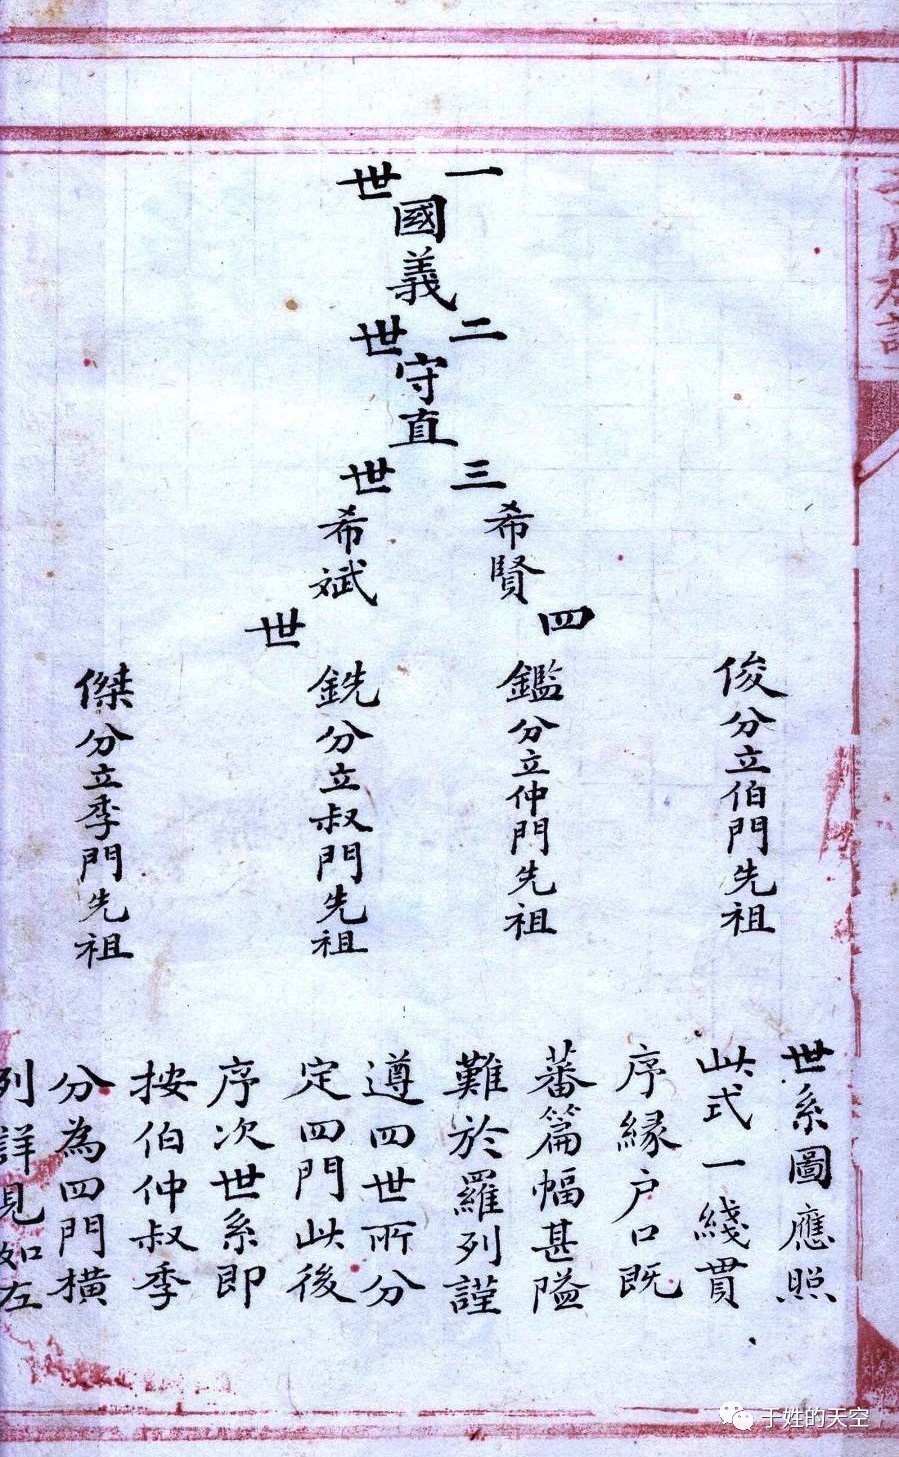 一世
國義
二世
守直
三世
希賢
希斌
四世
俊分立伯門先祖
鑑分立仲門先祖
銑分立叔門先祖
傑分立季門先祖
世系圖應照
此式一綫貫
序緣户口既
蕃篇幅甚隘
難於羅列謹
遵四世所分
定四門此後
序次世系即
按伯仲叔季
分為四門橫
列詳見如左
于姓的天空